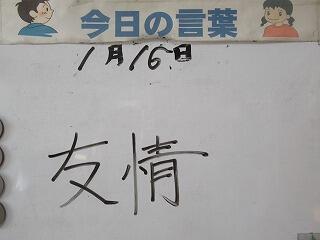 今日の言葉
1月16日
友情